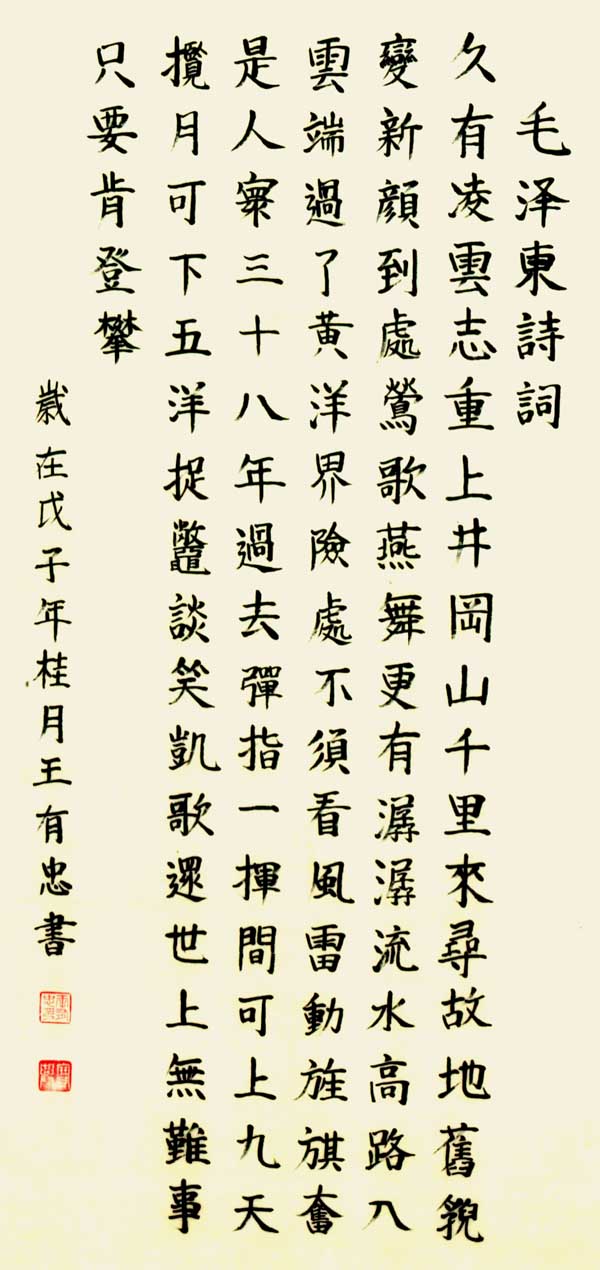 毛泽東詩詞
久有凌雲志重上井岡山千里來尋故地舊貌
變新顔到處鶯歌燕舞更有潺潺流水高路入
雲端過了黄洋界險處不須看風雷動旌旗奮
是人寰三十八年過去彈指一揮間可上九天
攬月可下五洋捉鼈談笑凱歌還世上無難事
只要肯登攀
歲在戊子年桂月王有忠書